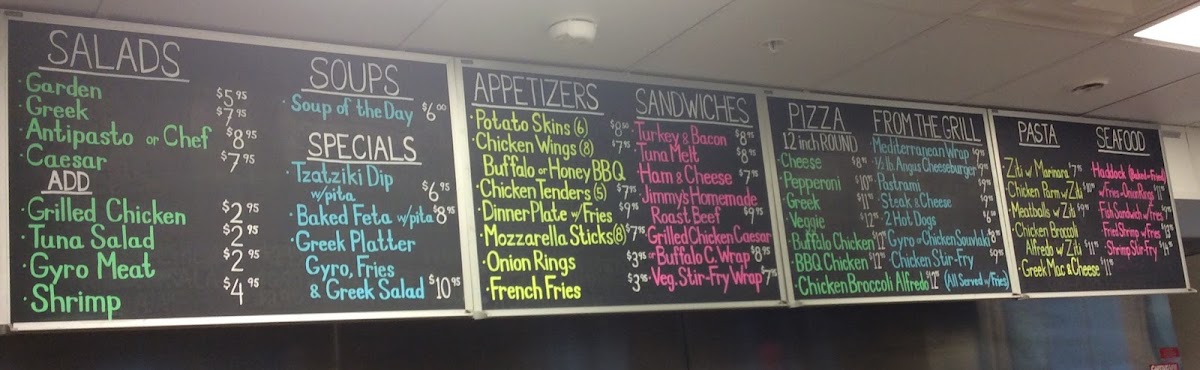 SALADS
Garden $5.95
Greek $7.95
Antipasto or Chef $8.95
Caesar $7.95
ADD
Grilled Chicken $2.95
Tuna Salad $2.95
Gyro Meat $2.95
Shrimp $4.95
SOUPS
Soup of the Day $6.00
SPECIALS
Tzatziki Dip
w/pita $6.95
Baked Feta w/pita $8.95
Greek Platter
Gyro, Fries
& Greek Salad $10.95
APPETIZERS
Potato Skins (6) $8.50
Chicken Wings (8) $7.95
Buffalo or Honey BBQ
Chicken Tenders (5) $7.95
Dinner Plate w/Fries $9.95
Mozzarella Sticks (8) $7.95
Onion Rings $3.95
French Fries $3.95
SANDWICHES
Turkey & Bacon $8.95
Tuna Melt $8.95
Ham & Cheese $7.95
Jimmy's Homemade
Roast Beef $9.95
Grilled Chicken Caesar
or Buffalo C. Wrap $8.95
Veg. Stir-Fry Wrap $7.95
PIZZA
12 inch ROUND
Cheese
Pepperoni
Greek
Veggie
Buffalo Chicken
BBQ Chicken
Chicken Broccoli Alfredo
FROM THE GRILL
Mediterranean Wrap
½ lb Angus Cheeseburger
Pastrami
Steak & Cheese
2 Hot Dogs
Gyro or Chicken Souvlaki
Chicken Stir-Fry
(All Served w/Fries)
PASTA
Ziti w/ Marinara
Chicken Parm w/ Ziti
Meatballs w/ Ziti
Chicken Broccoli
Alfredo w/ Ziti
Greek Mac & Cheese
SEAFOOD
Haddock (Baked-Fried)
w/Fries-Onion Rings
Fish Sandwich w/Fries
Fried Shrimp w/Fries
Shrimp Stir-Fry